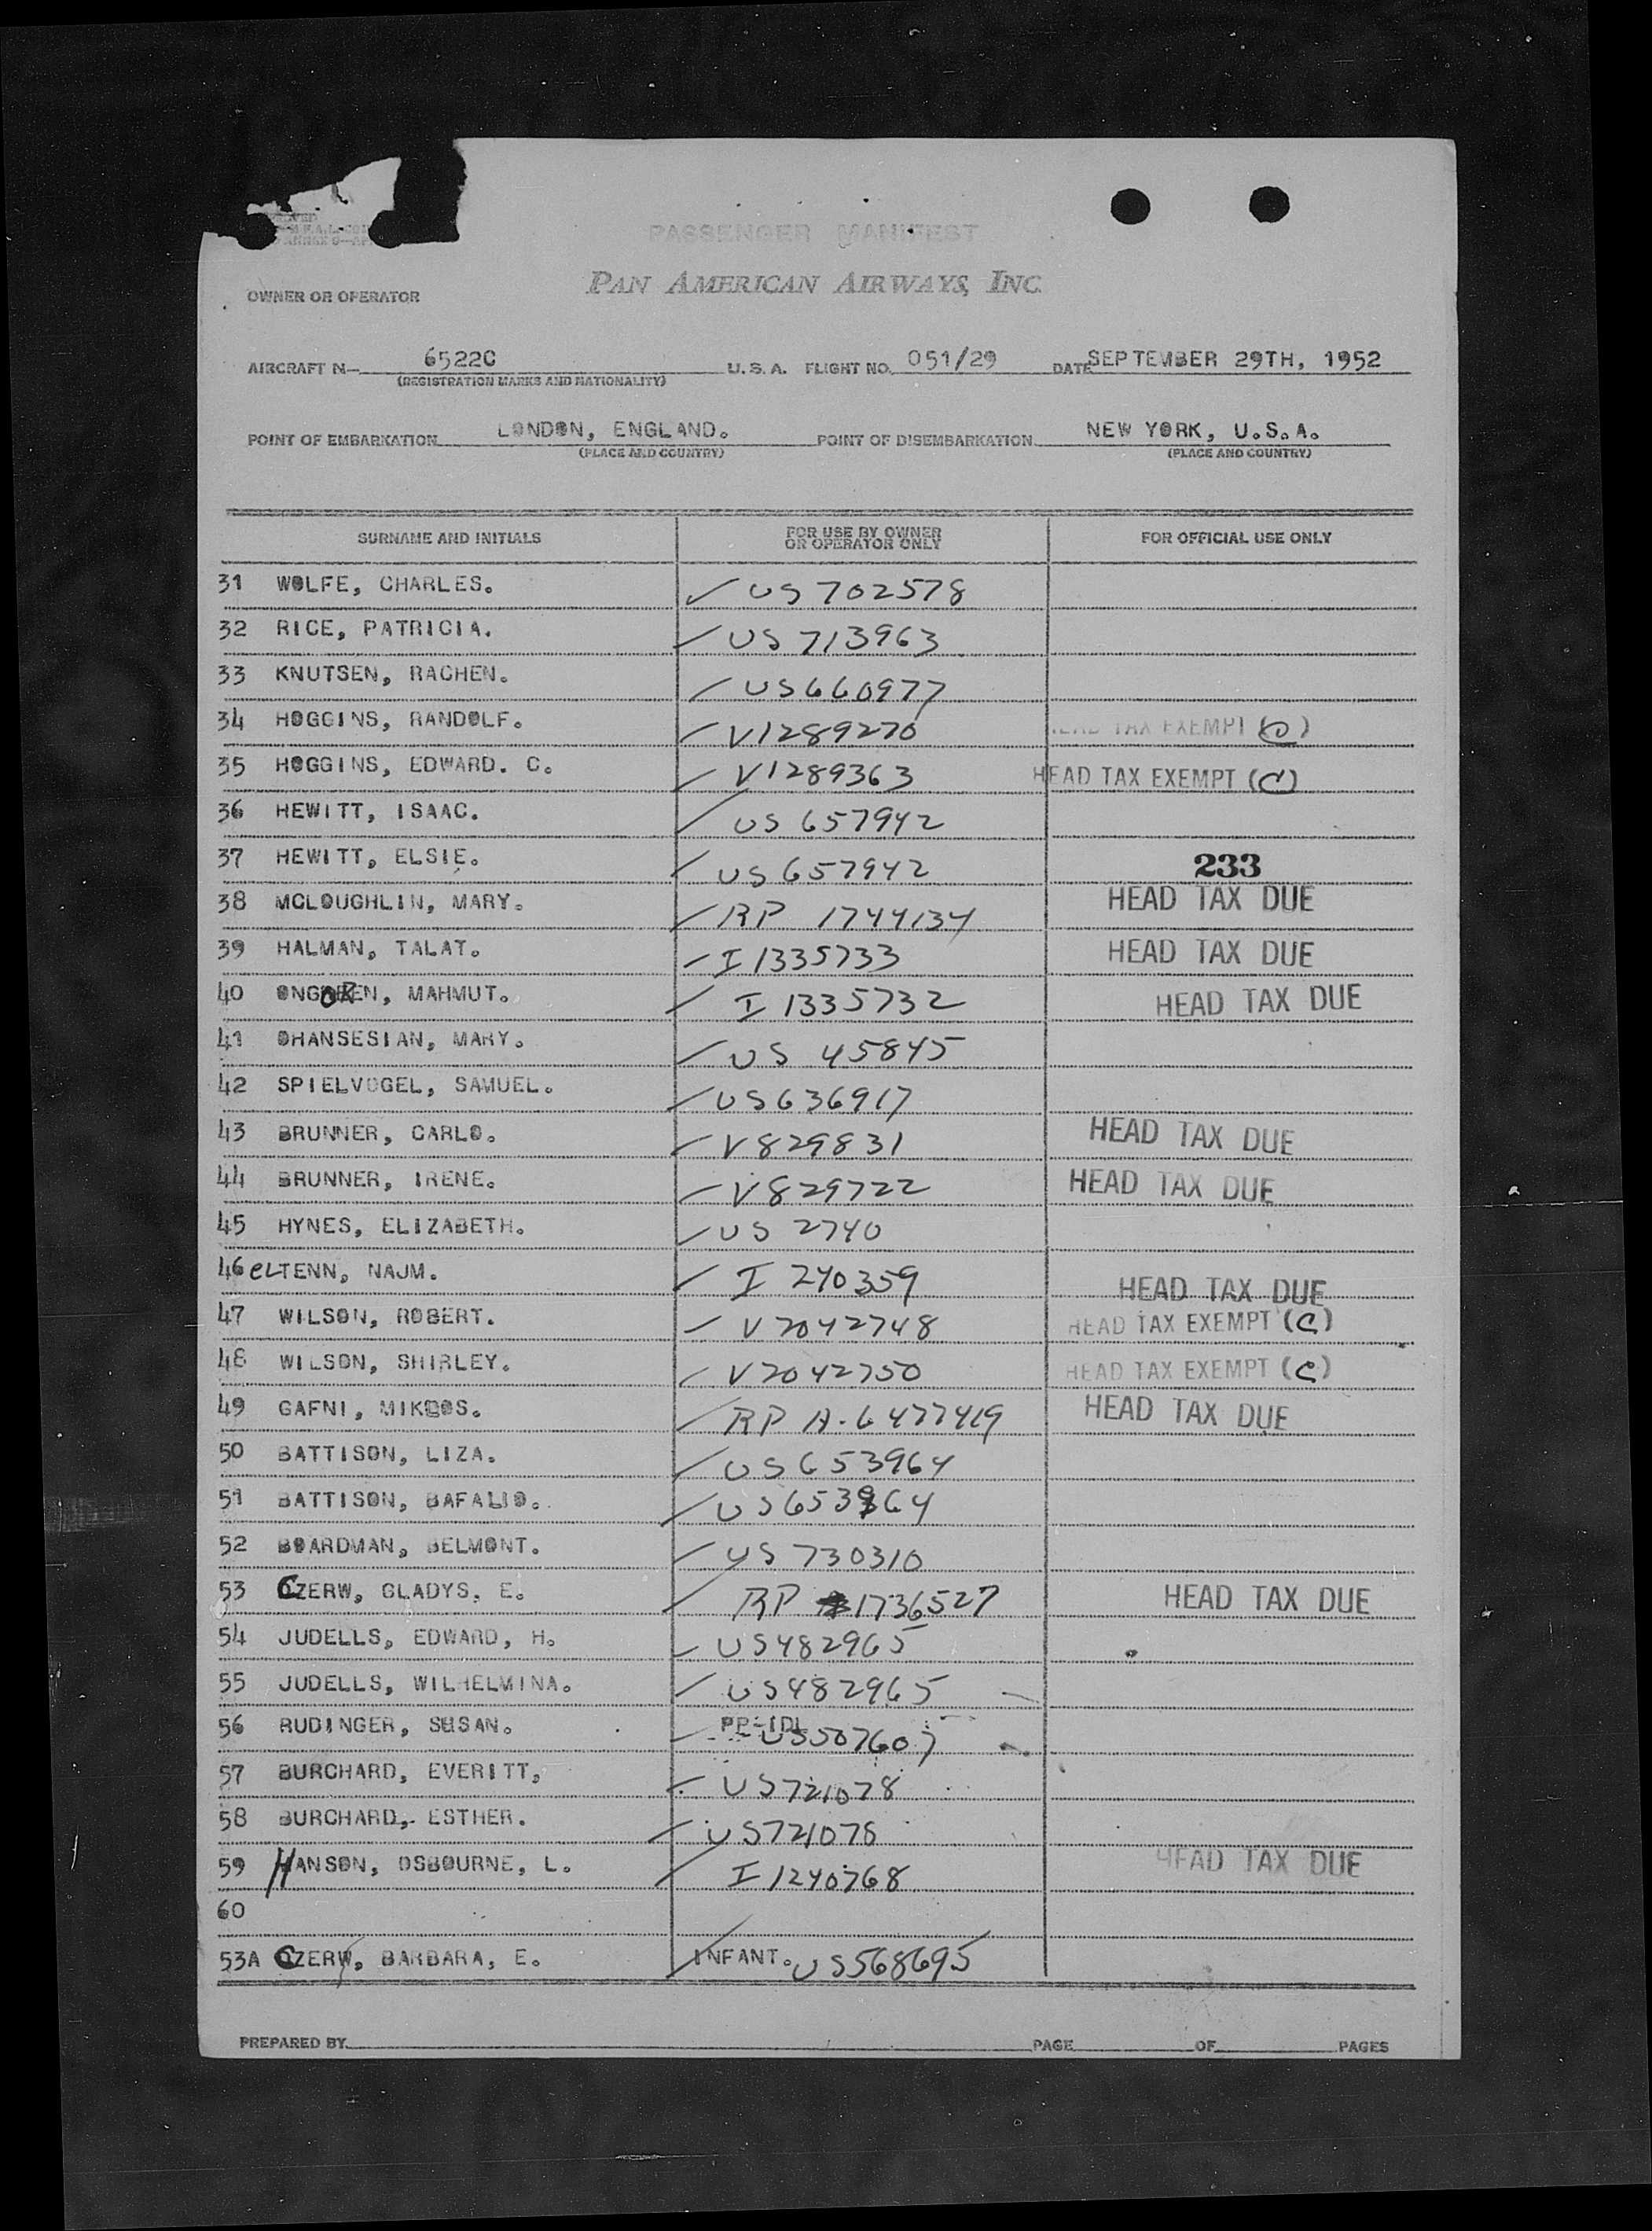 PASSENGER MANIFEST
PAN AMERICAN AIRWAYS, INC.
OWNER OR OPERATOR
AIRCRAFT N— 6522C U. S. A. FLIGHT NO. 051/29 DATE SEPTEMBER 29TH, 1952
(REGISTRATION MARKS AND NATIONALITY)
POINT OF EMBARKATION LONDON, ENGLAND. POINT OF DISEMBARKATION NEW YORK, U.S.A.
(PLACE AND COUNTRY) (PLACE AND COUNTRY)
SURNAME AND INITIALS FOR USE BY OWNER OR OPERATOR ONLY FOR OFFICIAL USE ONLY
31 WOLFE, CHARLES. ✓ US 702578
32 RICE, PATRICIA. ✓ US 713963
33 KNUTSEN, RACHEN. ✓ US660977
34 HOGGINS, RANDOLF. ✓ V1289270 HEAD TAX EXEMPT
35 HOGGINS, EDWARD. C. ✓ V1289363 HEAD TAX EXEMPT (C)
36 HEWITT, ISAAC. ✓ US 657942
37 HEWITT, ELSIE. ✓ US 657942 233
38 MCLOUGHLIN, MARY. ✓ RP 1744134 HEAD TAX DUE
39 HALMAN, TALAT. ✓ I 1335733 HEAD TAX DUE
40 ONGOREN, MAHMUT. ✓ I 1335732 HEAD TAX DUE
41 OHANSESIAN, MARY. ✓ US 45845
42 SPIELVOGEL, SAMUEL. ✓ US636917
43 BRUNNER, CARLO. ✓ V829831 HEAD TAX DUE
44 BRUNNER, IRENE. ✓ V829722 HEAD TAX DUE
45 HYNES, ELIZABETH. ✓ US 2740
46 eLTENN, NAJM. ✓ I 240359 HEAD TAX DUE
47 WILSON, ROBERT. ✓ V2042748 HEAD TAX EXEMPT (C)
48 WILSON, SHIRLEY. ✓ V2042750 HEAD TAX EXEMPT (C)
49 GAFNI, MIKLOS. ✓ RP A-6477419 HEAD TAX DUE
50 BATTISON, LIZA. ✓ US653964
51 BATTISON, BAFALIO. ✓ US653964
52 BOARDMAN, BELMONT. ✓ US 730310
53 CZERW, GLADYS, E. ✓ RP 1736527 HEAD TAX DUE
54 JUDELLS, EDWARD, H. ✓ US482965
55 JUDELLS, WILHELMINA. ✓ US482965
56 RUDINGER, SUSAN. ✓ US507607
57 BURCHARD, EVERITT, ✓ US721078
58 BURCHARD, ESTHER. ✓ US721078
59 HANSON, OSBOURNE, L. ✓ I 1240768 HEAD TAX DUE
60
53A CZERW, BARBARA, E. ✓ INFANT. US568695
PREPARED BY PAGE OF PAGES